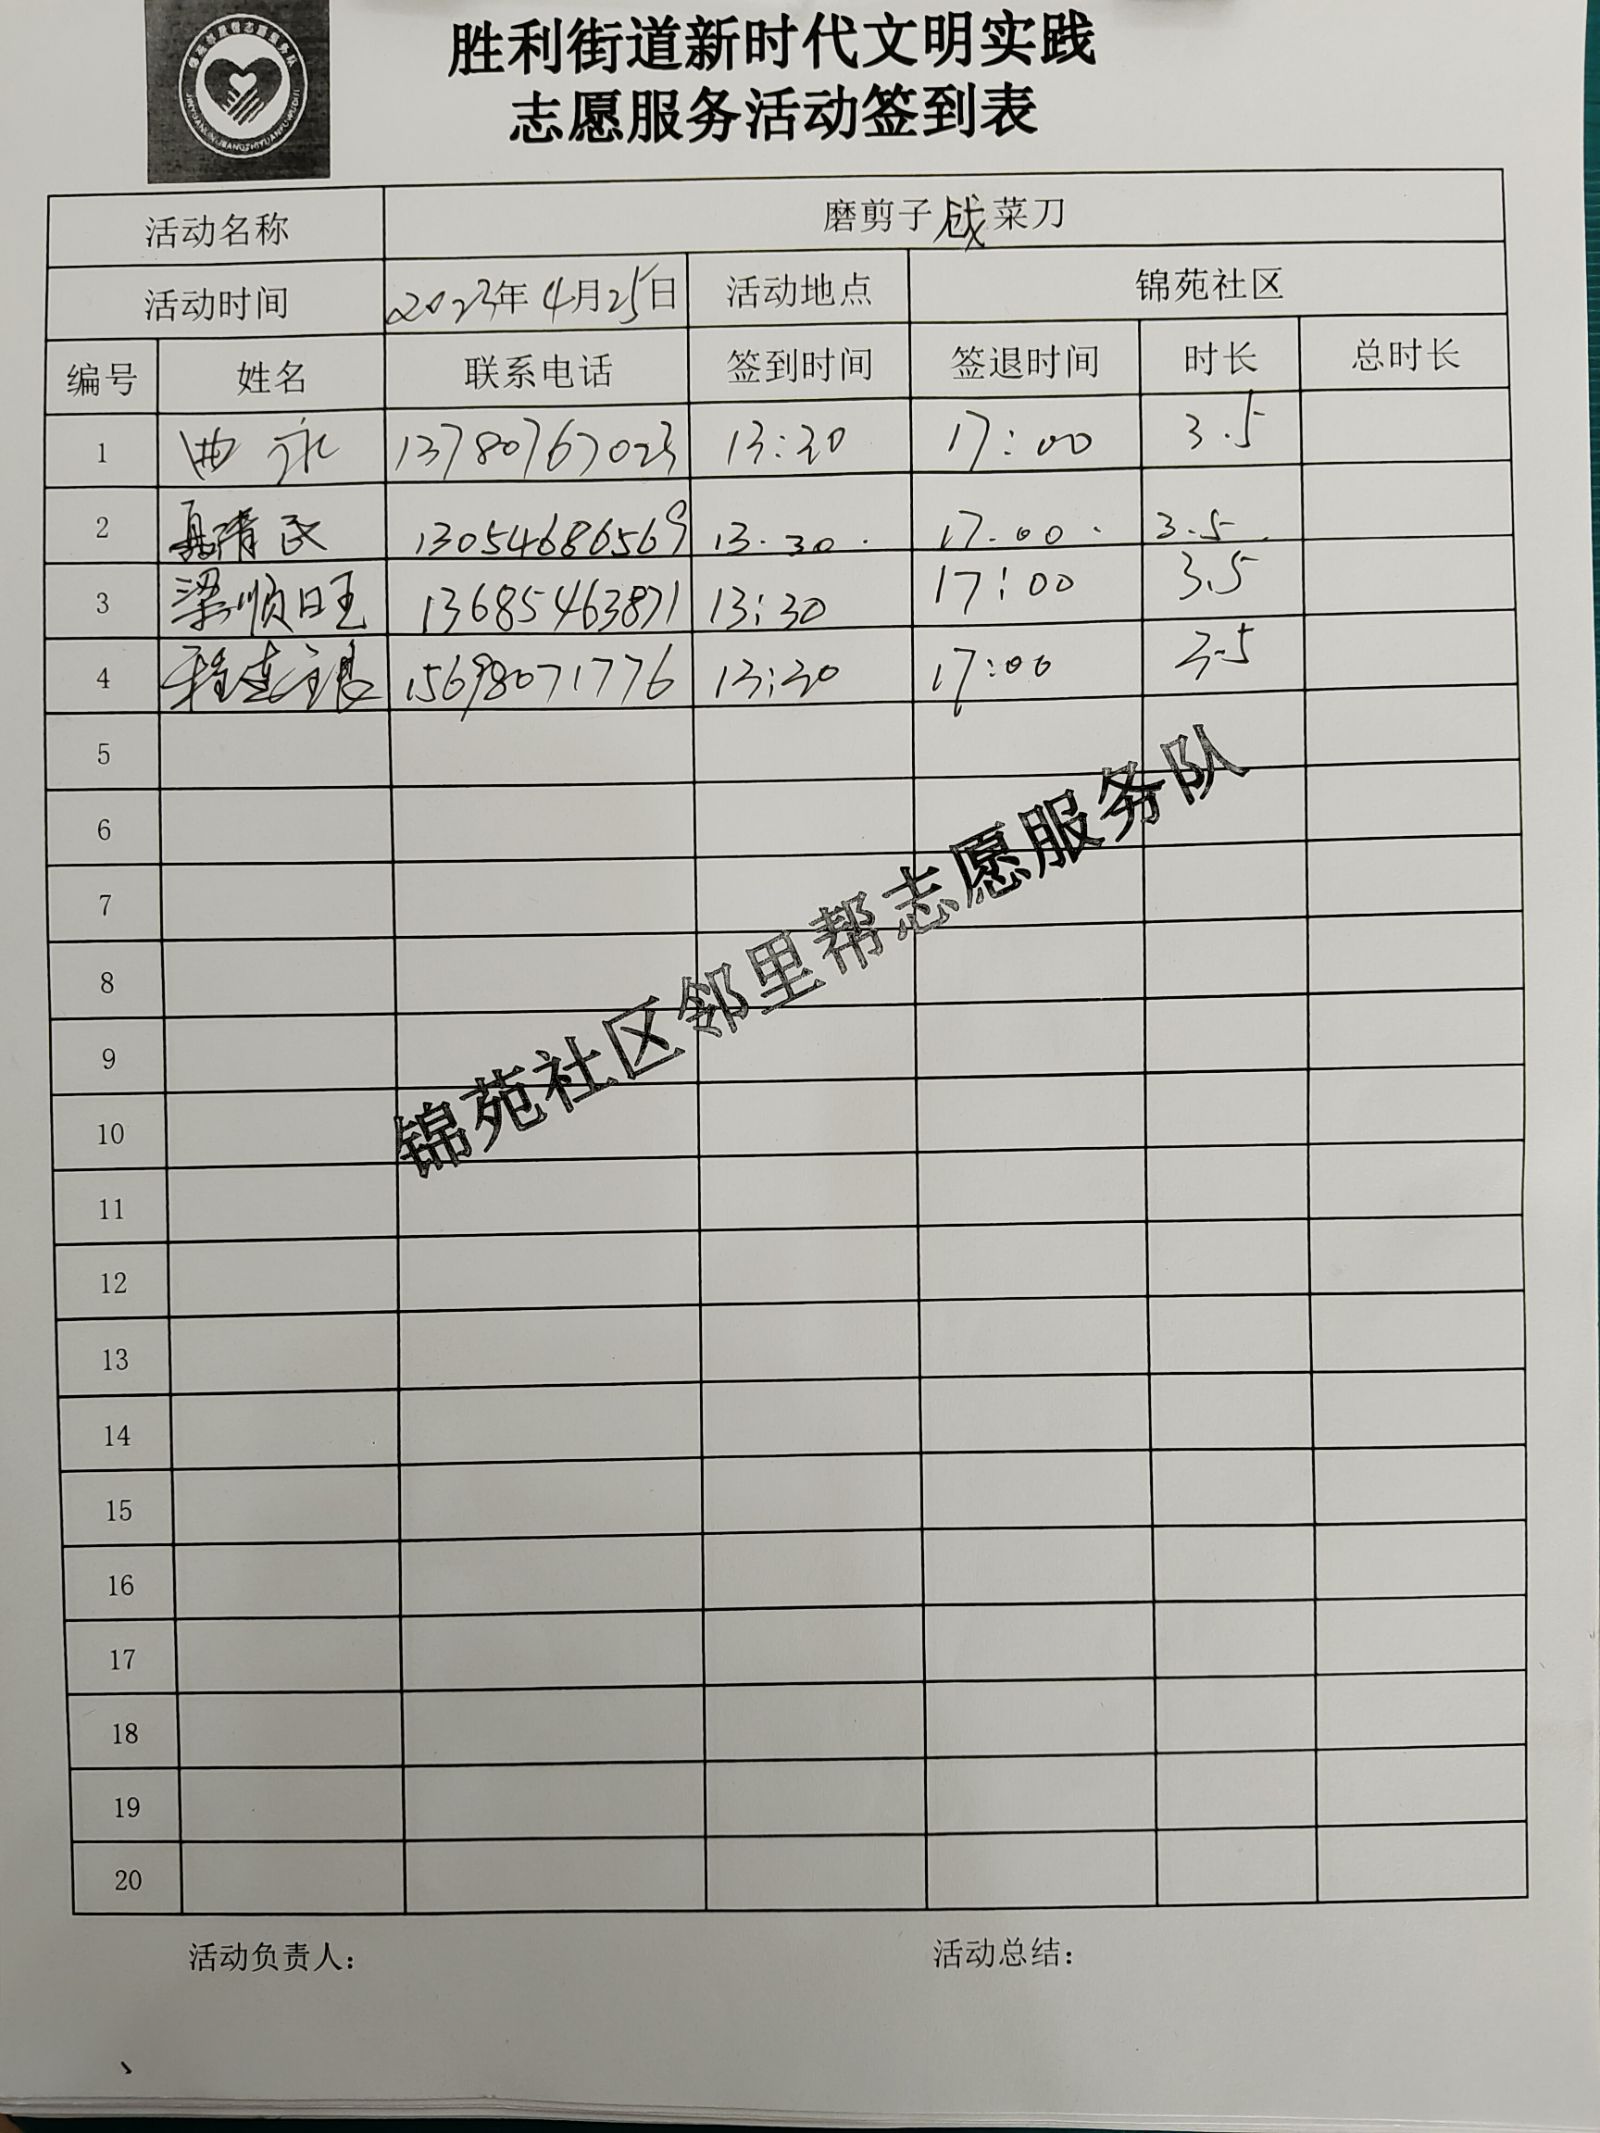 胜利街道新时代文明实践
志愿服务活动签到表
活动名称 磨剪子戗菜刀
活动时间 2023年4月25日 活动地点 锦苑社区
编号 姓名 联系电话 签到时间 签退时间 时长 总时长
1 永 13780767023 13:30 17:00 3.5
2 清民 13054686569 13.30. 17.00. 3.5.
3 梁顺旺 13685463871 13:30 17:00 3.5
4 15698071776 13:30 17:00 3.5
5
6
7
8
9
10
11
12
13
14
15
16
17
18
19
20
锦苑社区邻里帮志愿服务队
活动负责人： 活动总结：